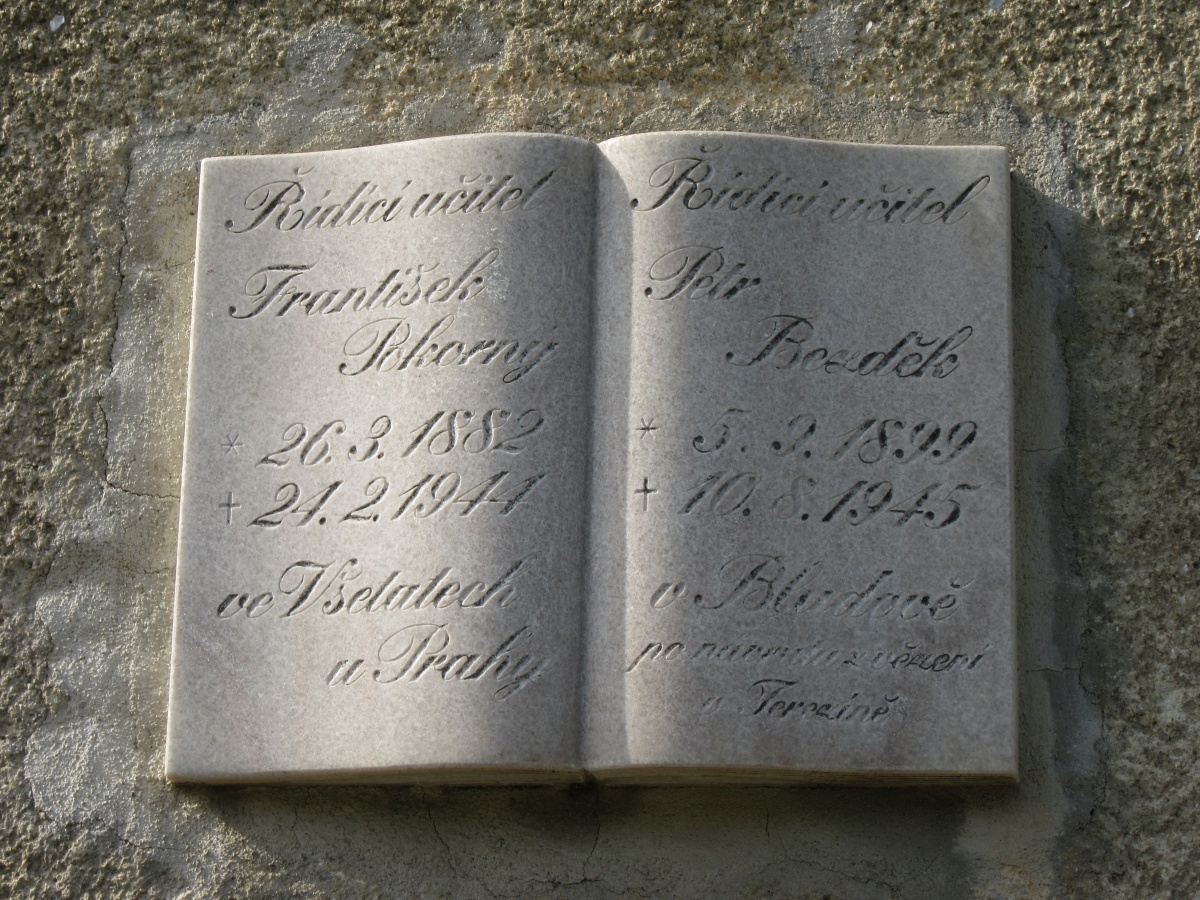 Řídící učitel
František
Pokorný
* 26. 3. 1882
+ 24. 2. 1944
ve Všetatech
u Prahy
Řídící učitel
Petr
Bezděk
* 5. 9. 1899
+ 10. 8. 1945
v Bludově
po návratu z vězení
v Terezíně